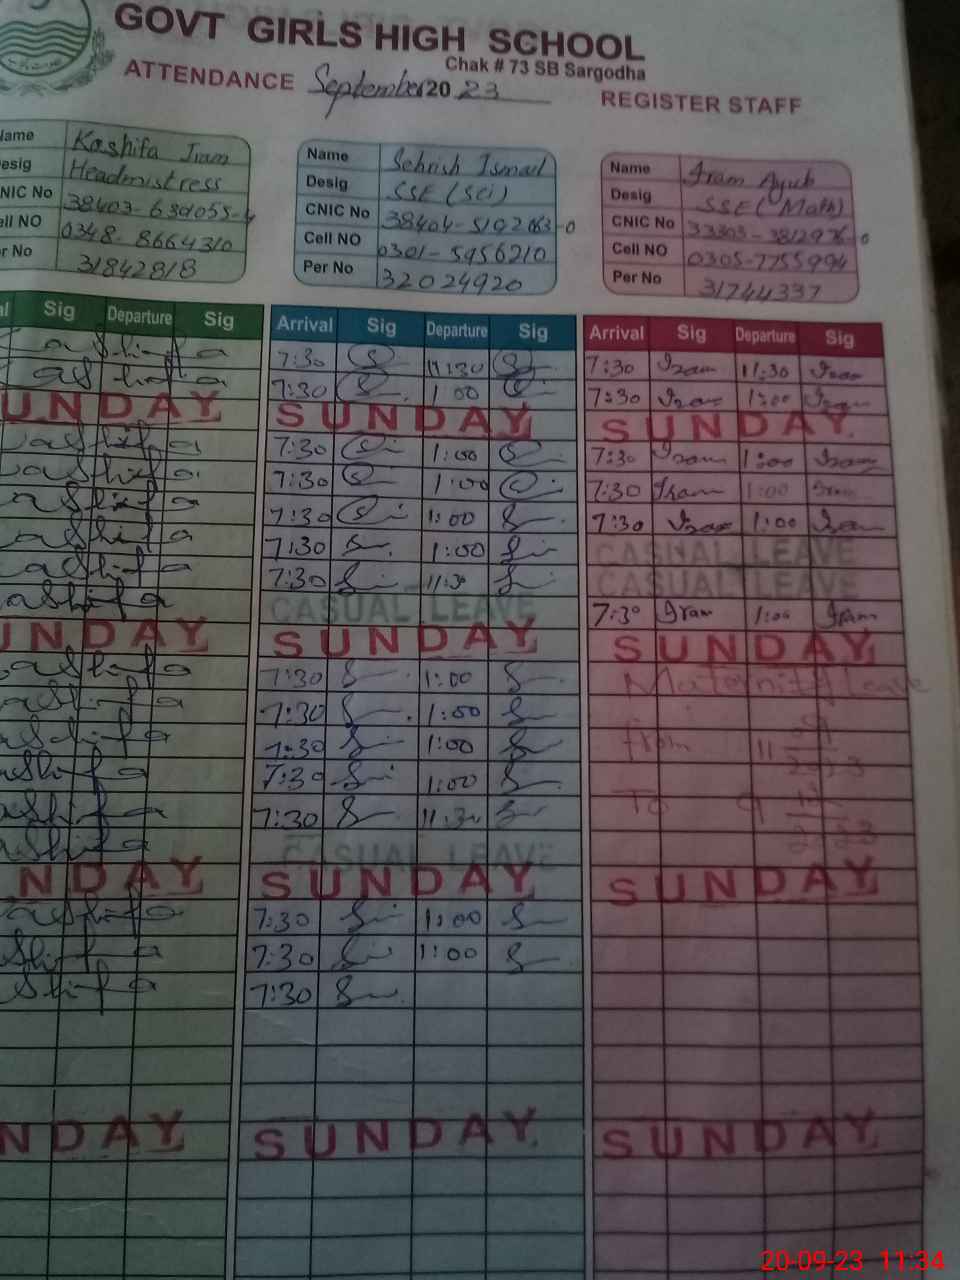 GOVT GIRLS HIGH SCHOOL
Chak # 73 SB Sargodha
ATTENDANCE September 2023 REGISTER STAFF
Name Kashifa Iram
Desig Headmistress
CNIC No
Cell NO 0348-8664310
Per No 31842818
Name Sehrish Ismail
Desig SSE (Sci)
CNIC No 38404-5102063-0
Cell NO 0301-5956210
Per No 32024920
Name Iram Ayub
Desig SSE (Math)
CNIC No 33303-3812976-0
Cell NO 0305-7755994
Per No 31744337
Sig Departure Sig Arrival Sig Departure Sig Arrival Sig Departure Sig
Kashifa 7:30 11:30 7:30 Iram 11:30 Iram
Kashifa 7:30 1:00 7:30 Iram 1:00 Iram
SUNDAY SUNDAY SUNDAY
Kashifa 7:30 1:00 7:30 Iram 1:00 Iram
Kashifa 7:30 1:00 7:30 Iram 1:00 Iram
Kashifa 7:30 1:00 7:30 Iram 1:00 Iram
Kashifa 7:30 1:00 CASUAL LEAVE
Kashifa 7:30 11:30 CASUAL LEAVE
Kashifa CASUAL LEAVE 7:30 Iram 1:00 Iram
SUNDAY SUNDAY SUNDAY
Kashifa 7:30 1:00 Maternity Leave
Kashifa 7:30 1:00
Kashifa 7:30 1:00 from 11 09 2023
Kashifa 7:30 1:00
Kashifa 7:30 11:30 To 9 12 2023
Kashifa CASUAL LEAVE
SUNDAY SUNDAY SUNDAY
Kashifa 7:30 1:00
Kashifa 7:30 1:00
Kashifa 7:30
SUNDAY SUNDAY SUNDAY
20-09-23 11:34